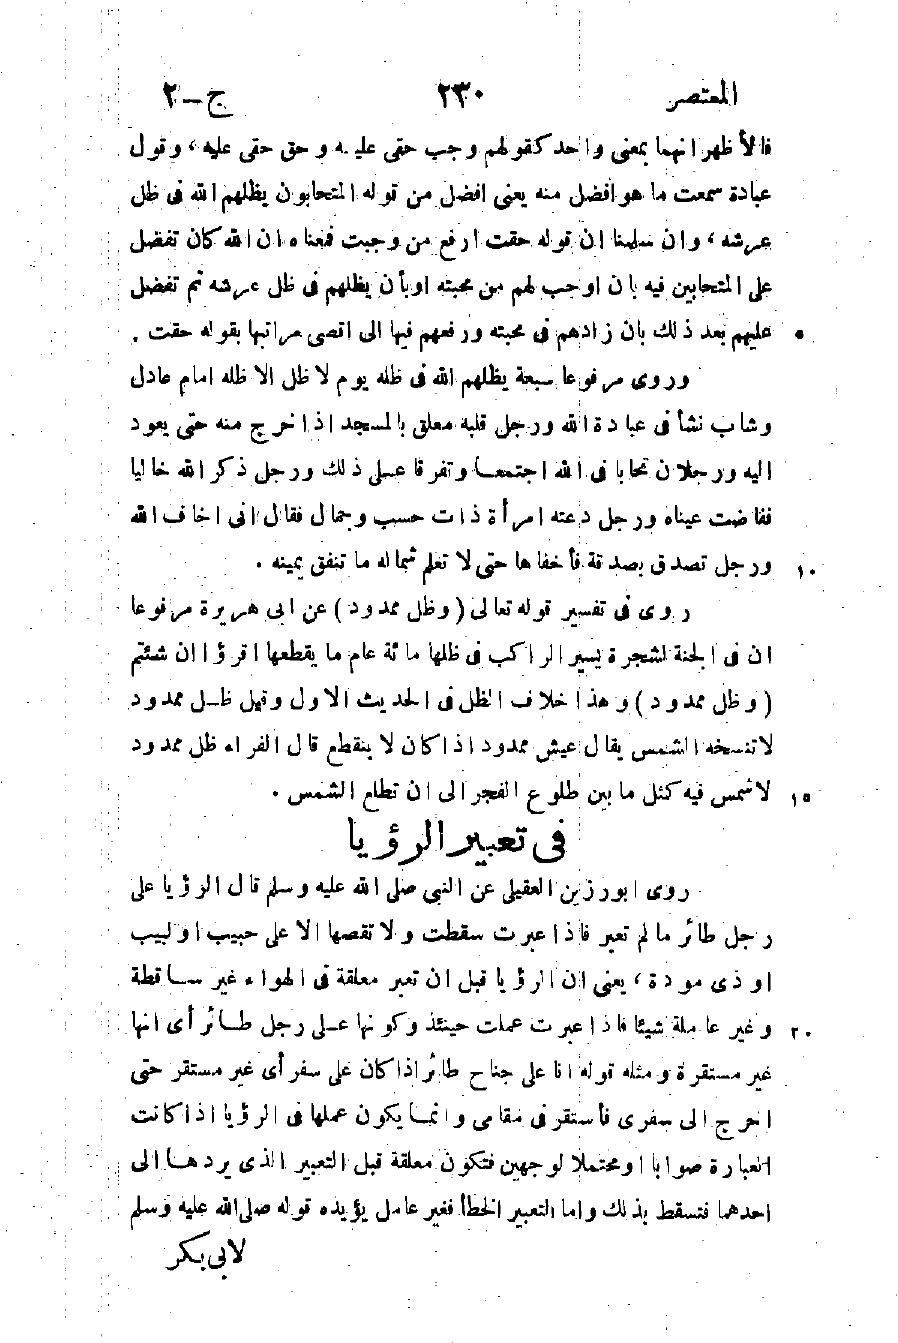 المعتصر ٢٣٠ ج-٢
فالأظهر انهما بمعنى واحد كقولهم وجب حقى عليه وحق حقى عليه، وقول
عبادة سمعت ما هو افضل منه يعنى افضل من قوله المتحابون يظلهم الله فى ظل
عرشه، وان سلمنا ان قوله حقت ارفع من وجبت فمعناه ان الله كان تفضل
على المتحابين فيه بان اوجب لهم من محبته اوبأن يظلهم فى ظل عرشه ثم تفضل
عليهم بعد ذلك بان زادهم فى محبته ورفعهم فيها الى اقصى مراتبها بقوله حقت . ٥
وروى مرفوعا سبعة يظلهم الله فى ظله يوم لا ظل الا ظله امام عادل
وشاب نشأ فى عبادة الله ورجل قلبه معلق بالمسجد اذا خرج منه حتى يعود
اليه ورجلان تحابا فى الله اجتمعا وتفرقا على ذلك ورجل ذكر الله خاليا
ففاضت عيناه ورجل دعته امرأة ذات حسب وجمال فقال انى اخاف الله
ورجل تصدق بصدقة فأخفاها حتى لا تعلم شماله ما تنفق يمينه . ١٠
روى فى تفسير قوله تعالى (وظل ممدود) عن ابى هريرة مرفوعا
ان فى الجنة لشجرة يسير الراكب فى ظلها مائة عام ما يقطعها اقرؤا ان شئتم
(وظل ممدود) وهذا خلاف الظل فى الحديث الاول وقيل ظل ممدود
لا تنسخه الشمس يقال عيش ممدود اذا كان لا ينقطع قال الفراء ظل ممدود
لاشمس فيه كظل ما بين طلوع الفجر الى ان تطلع الشمس . ١٥
فى تعبير الرؤيا
روى ابورزين العقيلى عن النبى صلى الله عليه وسلم قال الرؤيا على
رجل طائر ما لم تعبر فاذا عبرت سقطت ولا تقصها الا على حبيب او لبيب
او ذى مودة، يعنى ان الرؤيا قبل ان تعبر معلقة فى الهواء غير ساقطة
وغير عاملة شيئا فاذا عبرت عملت حينئذ وكونها على رجل طائر أى انها ٢٠
غير مستقرة ومثله قوله انا على جناح طائر اذا كان على سفر أى غير مستقر حتى
اخرج الى سفرى فأستقر فى مقامى وانما يكون عملها فى الرؤيا اذا كانت
العبارة صوابا او محتملا لوجهين فتكون معلقة قبل التعبير الذى يردها الى
احدهما فتسقط بذلك واما التعبير الخطأ فغير عامل يؤيده قوله صلى الله عليه وسلم
لابى بكر